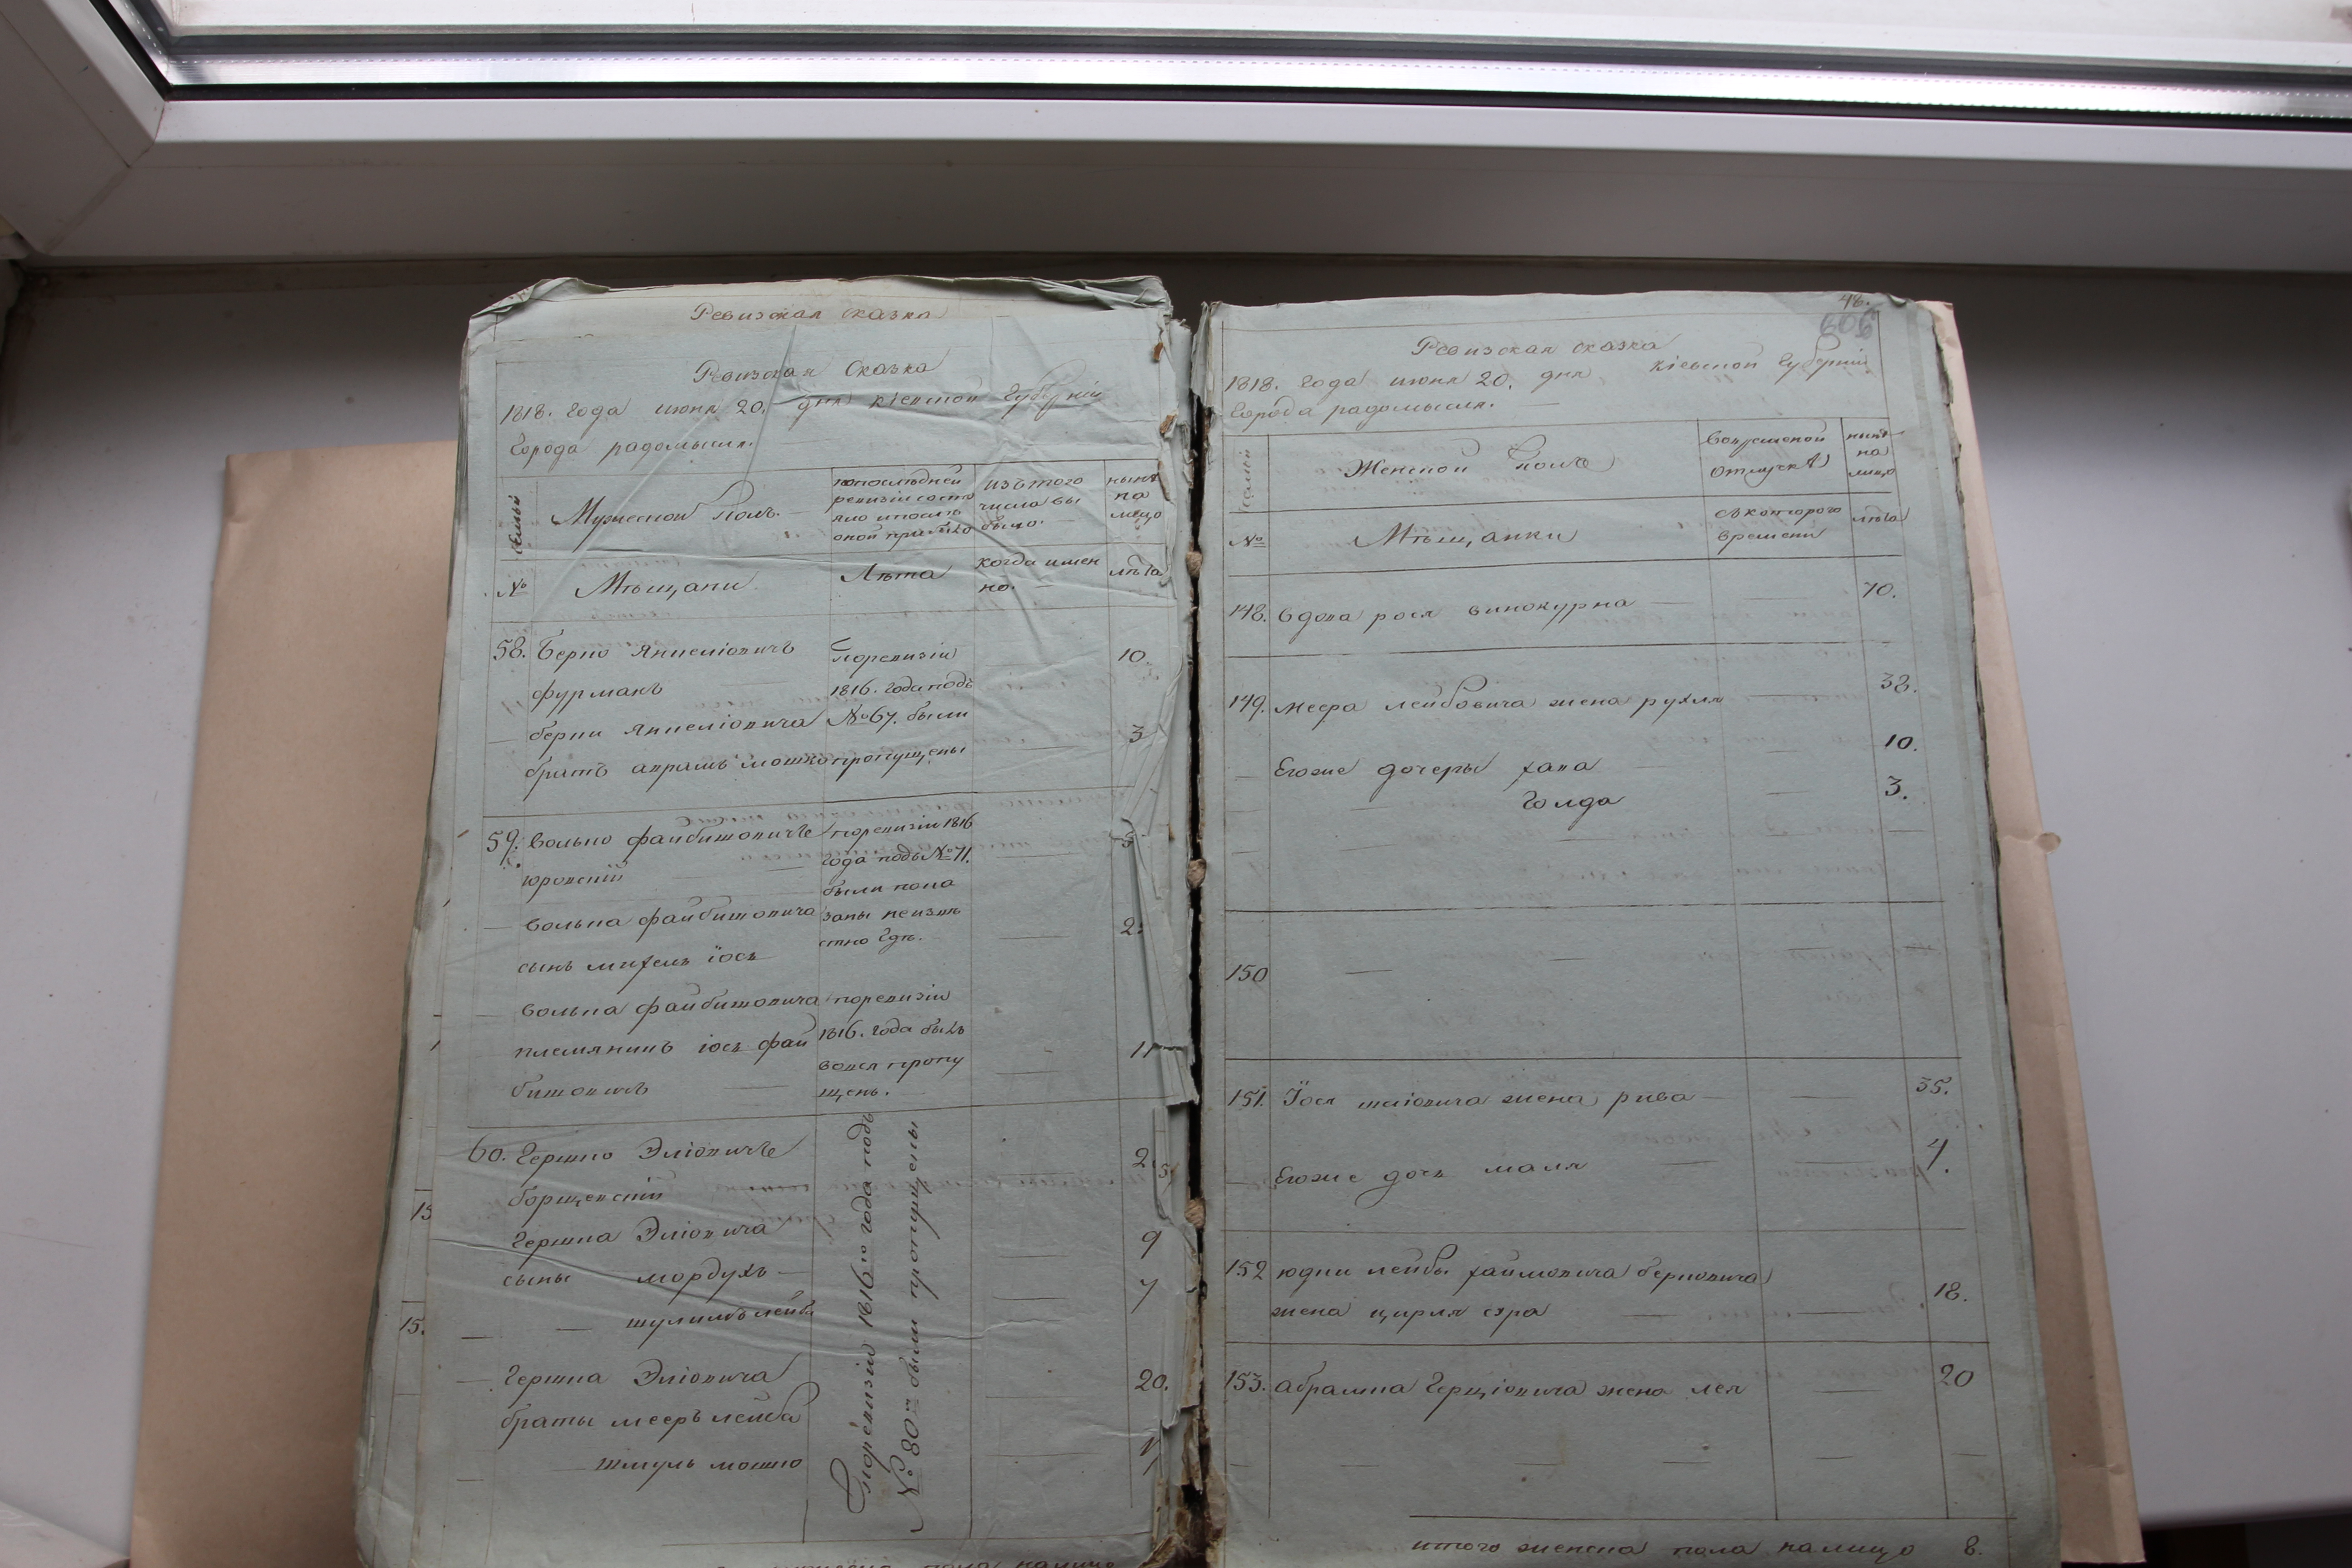 Ревизская сказка
Ревизская Сказка
1818. Года июня 20. дня кіевской Губерніи
Города радомысля.
Семьи
Мужеской Полъ.
попослѣдней
ревизіи состо
яло ипослѣ
оной прибыло
изътого
числа вы
было.
нынѣ
на
лицо
№
Мѣщани
Лѣта
когда имен
но.
лѣта
58. Берко Янкеліовичъ
фурманъ
поревизіи
1816. года подъ
10.
берки Янкеліовича
братъ аврамъ мошко
№ 67. были
пропущены
3
59. Волько файбишовичъ
юровскій
поревизіи 1816
года подъ № 71.
были пока
заны неизвѣ
стно где.
Волька файбишовича
сынъ михель іось
2.
Волька файбишовича
племяникъ іось фай
бишовичъ
поревизіи
1816. года былъ
вовся пропу
щенъ.
11
60. Гершко Эліовичъ
борщевскій
2
Гершка Эліовича
сыны мордухъ
9
шулимъ лейба
7
Гершка Эліовича
браты мееръ лейба
20.
шмуль мошко
Поревизіи 1816го года подъ
№ 80м были пропущены
15
15.
48.
606
Ревизская сказка
1818. Года июня 20. дня кіевской Губерніи
Города радомысля.
Семьи
Женской полъ
Вовременой
отлучкѣ
нынѣ
на
лицо
№
Мѣщанки
съкоторого
времени
лѣта
148. вдова рося винокурка 70.
149. меера лейбовича жена рухля 38.
Егоже дочеры хана 10.
Голда 3.
150
151. Іося шаіовича жена рива 35.
Егоже дочь маля 4.
152 юдки лейбы хаймовича берковича
жена цирля сура 18.
153. абрамка Герцовича жена лея 20
итого женска пола налицо 8.